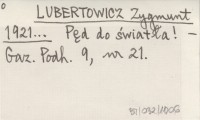 LUBERTOWICZ Zygmunt
1921... Pęd do światła! –
Gaz. Podh. 9, nr 21.